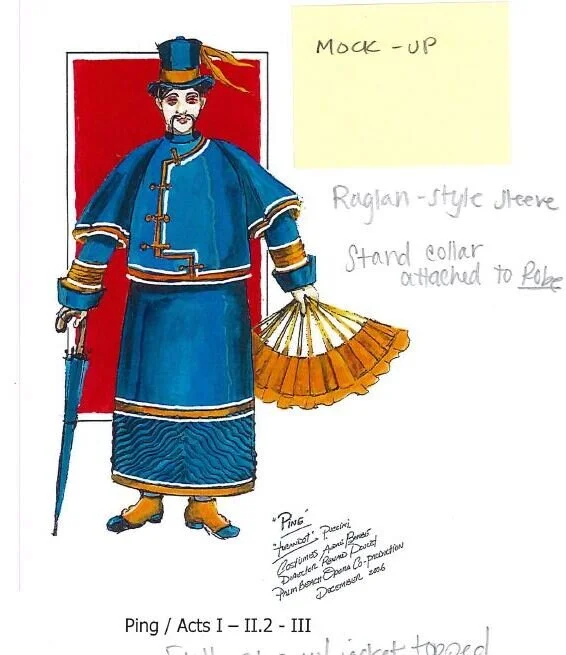 MOCK-UP
Raglan-style sleeve
Stand collar
attached to Robe
"PING"
"TURANDOT" PUCCINI
COSTUMES ANDRÉ BARBE
DIRECTOR RENAUD DOUCET
PALM BEACH OPERA CO-PRODUCTION
DECEMBER 2006
Ping / Acts I – II.2 - III
jacket topped